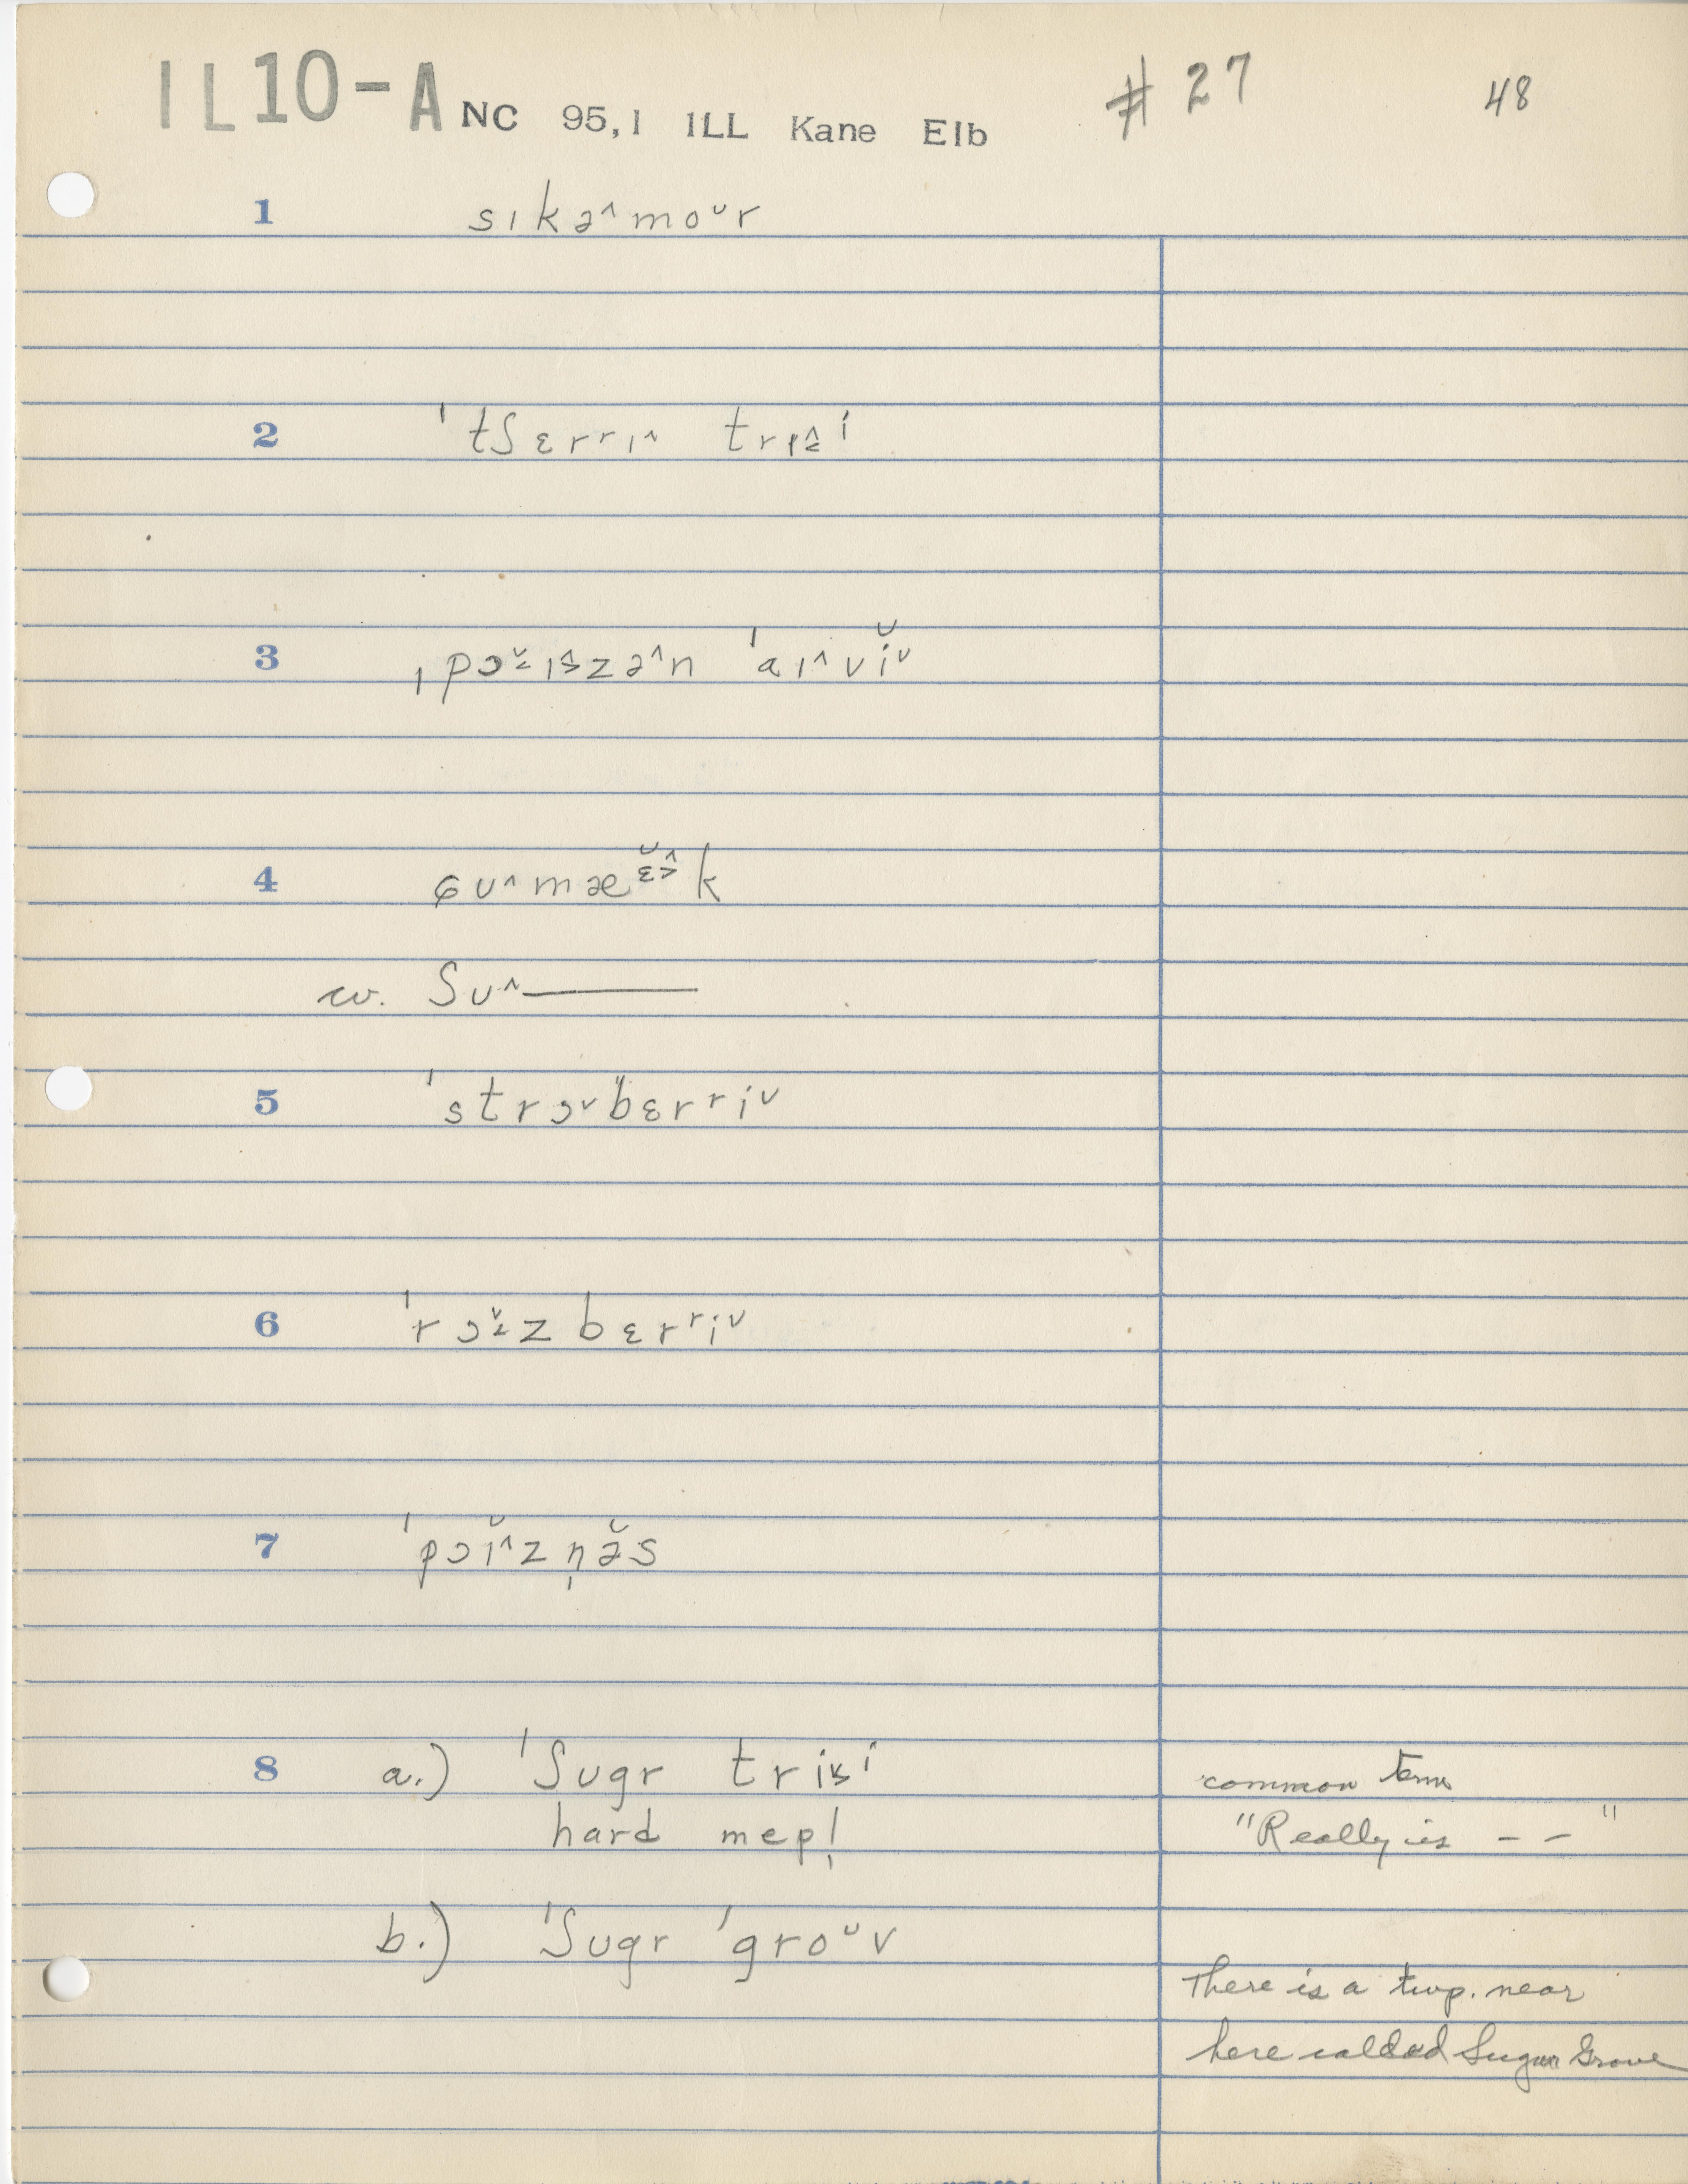 IL10-A NC 95,1 ILL Kane Elb # 27 48
1 sɪkə^moᵘr
2 ˈtʃɛrrɪ^ trɪi
3 ˌpɔɪzə^n ˈaɪ^vĭᵛ
4 ɕʊ^mæɛk
cv. ʃʊ^———
5 ˈstrɔᵛbɛrrɪᵛ
6 ˈrɔzbɛrriᵛ
7 ˈpɔɪ̆^zn̩ə̆s
8 a.) ˈʃugr trii common term
hard mepl̩ "Really is – – "
b.) ˈʃugr ˈgroᵘv
There is a twp. near
here called Sugar Grove